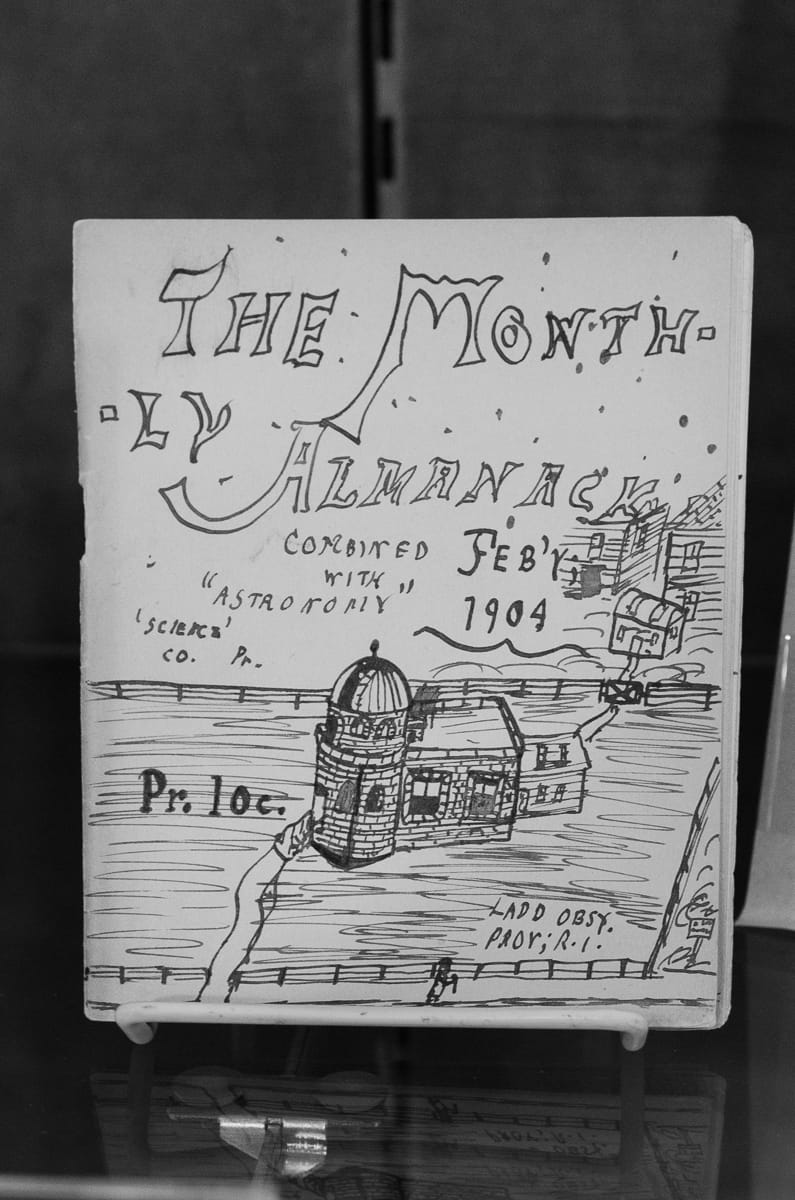 THE MONTH-
-LY
ALMANACK
COMBINED
WITH
"ASTRONOMY"
FEB'Y,
1904
'SCIENCE'
CO. Pr.
Pr. 10c.
LADD OBSY.
PROV; R.I.